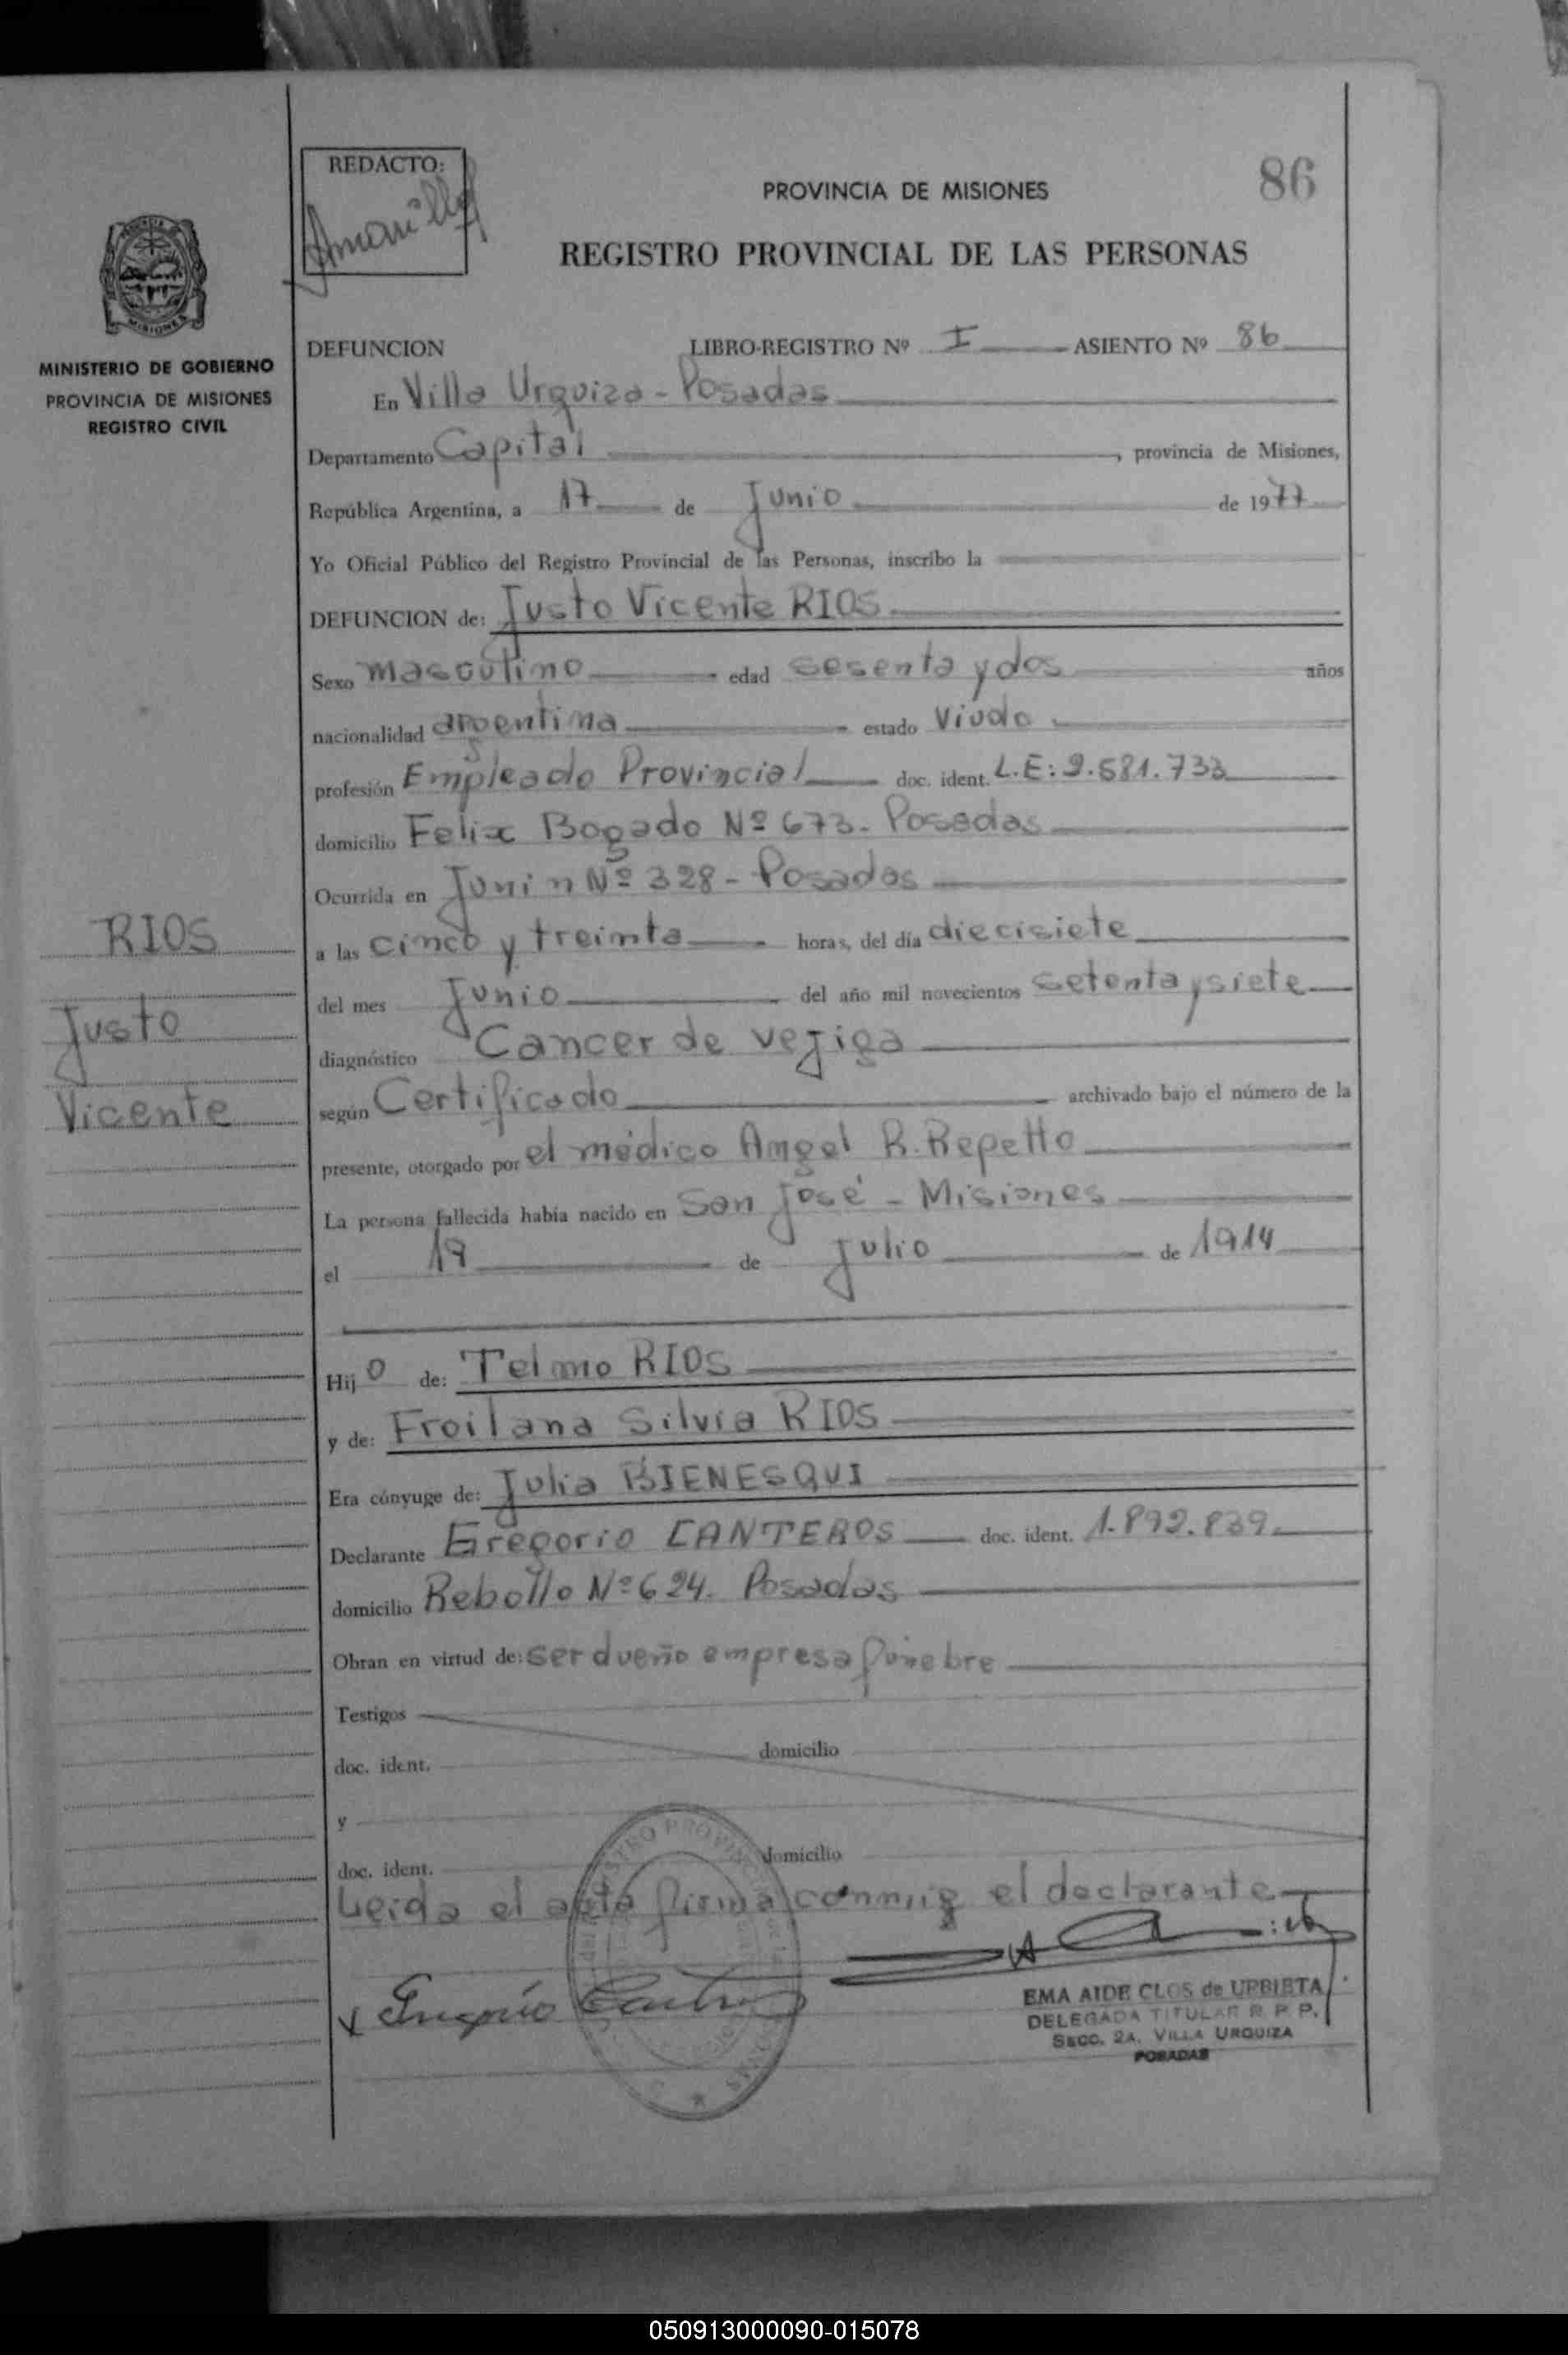 REDACTO:
PROVINCIA DE MISIONES
86
REGISTRO PROVINCIAL DE LAS PERSONAS
MINISTERIO DE GOBIERNO
PROVINCIA DE MISIONES
REGISTRO CIVIL
DEFUNCION LIBRO-REGISTRO Nº I ASIENTO Nº 86
En Villa Urquiza - Posadas
Departamento Capital, provincia de Misiones,
República Argentina, a 17 de Junio de 1977
Yo Oficial Público del Registro Provincial de las Personas, inscribo la
DEFUNCION de: Justo Vicente RIOS
Sexo masculino edad sesenta y dos años
nacionalidad argentina estado Viudo
profesión Empleado Provincial doc. ident. L.E: 9.581.733
domicilio Felix Bogado Nº 673- Posadas
Ocurrida en Junin Nº 328 - Posadas
a las cinco y treinta horas, del día diecisiete
del mes Junio del año mil novecientos setenta y siete
diagnóstico Cancer de vejiga
según Certificado archivado bajo el número de la
presente, otorgado por el médico Angel R. Repetto
La persona fallecida había nacido en San José - Misiones
el 19 de Julio de 1914
Hijo de: Telmo RIOS
y de: Froilana Silvia RIOS
Era cónyuge de: Julia BIENESQUI
Declarante Gregorio CANTEROS doc. ident. 1.892.839
domicilio Rebollo Nº 624. Posadas
Obran en virtud de: ser dueño empresa fúnebre
Testigos
doc. ident. domicilio
y
doc. ident. domicilio
Leida el acta firma conmig el declarante
RIOS
Justo
Vicente
EMA AIDE CLOS de URBIETA
DELEGADA TITULAR R. P. P.
SECC. 2A. VILLA URQUIZA
POSADAS
050913000090-015078